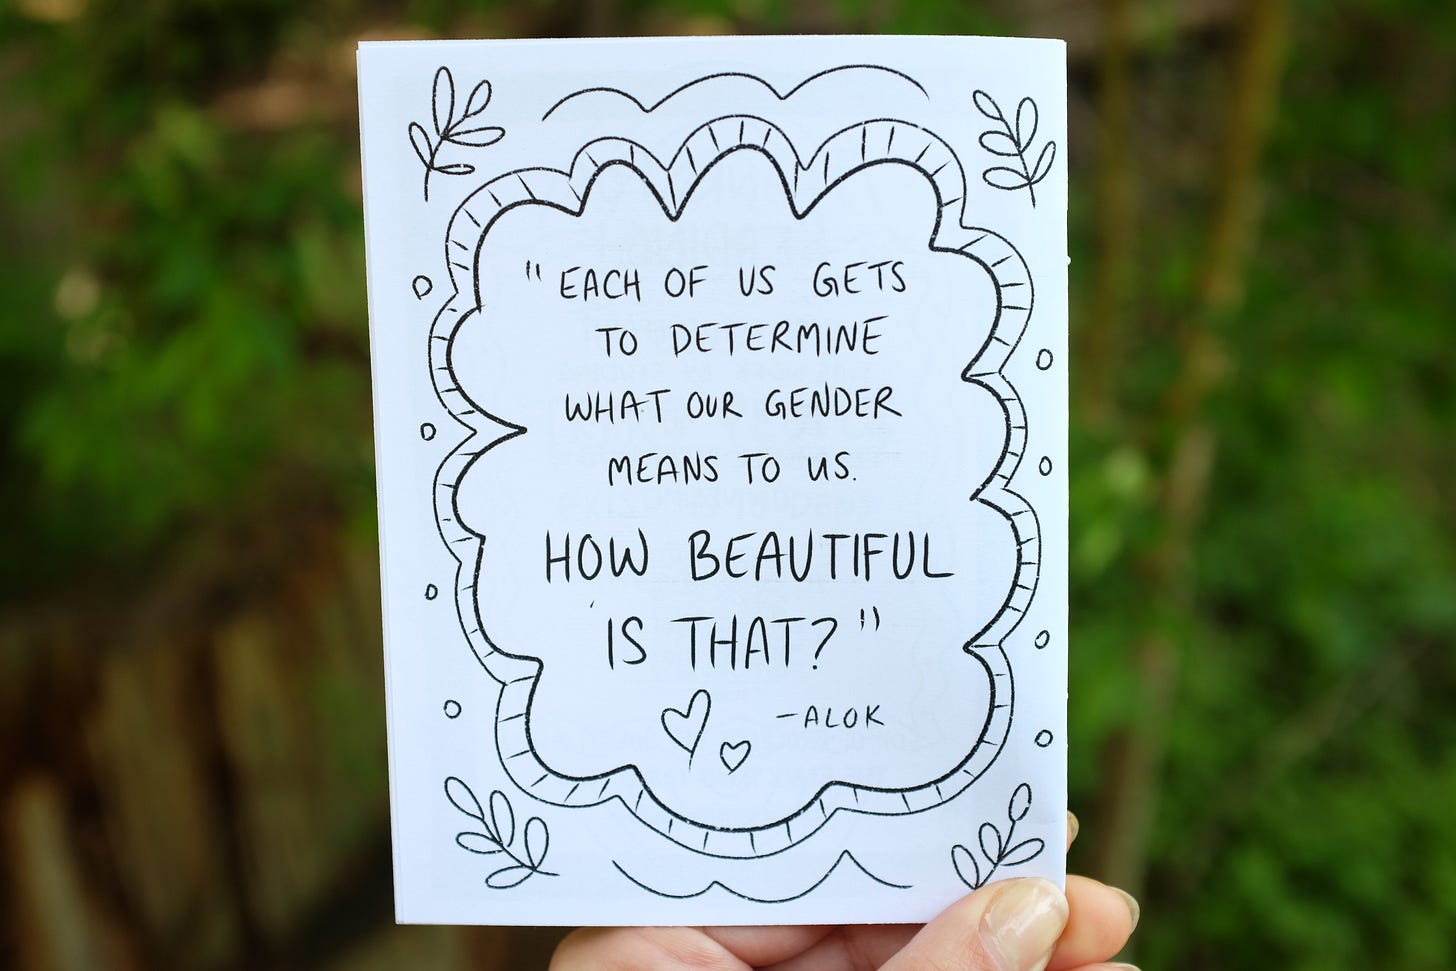 "EACH OF US GETS
TO DETERMINE
WHAT OUR GENDER
MEANS TO US.
HOW BEAUTIFUL
IS THAT?"
-ALOK